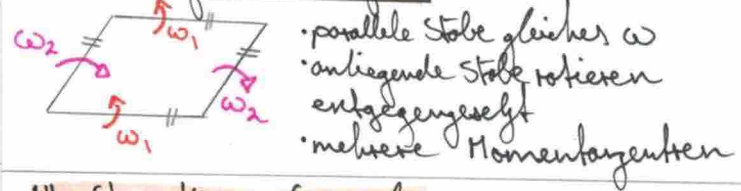 ω₂
ω₁
ω₂
ω₁
· parallele Stäbe gleiches ω
· anliegende Stäbe rotieren
entgegengesetzt
· mehrere Momentanzentren